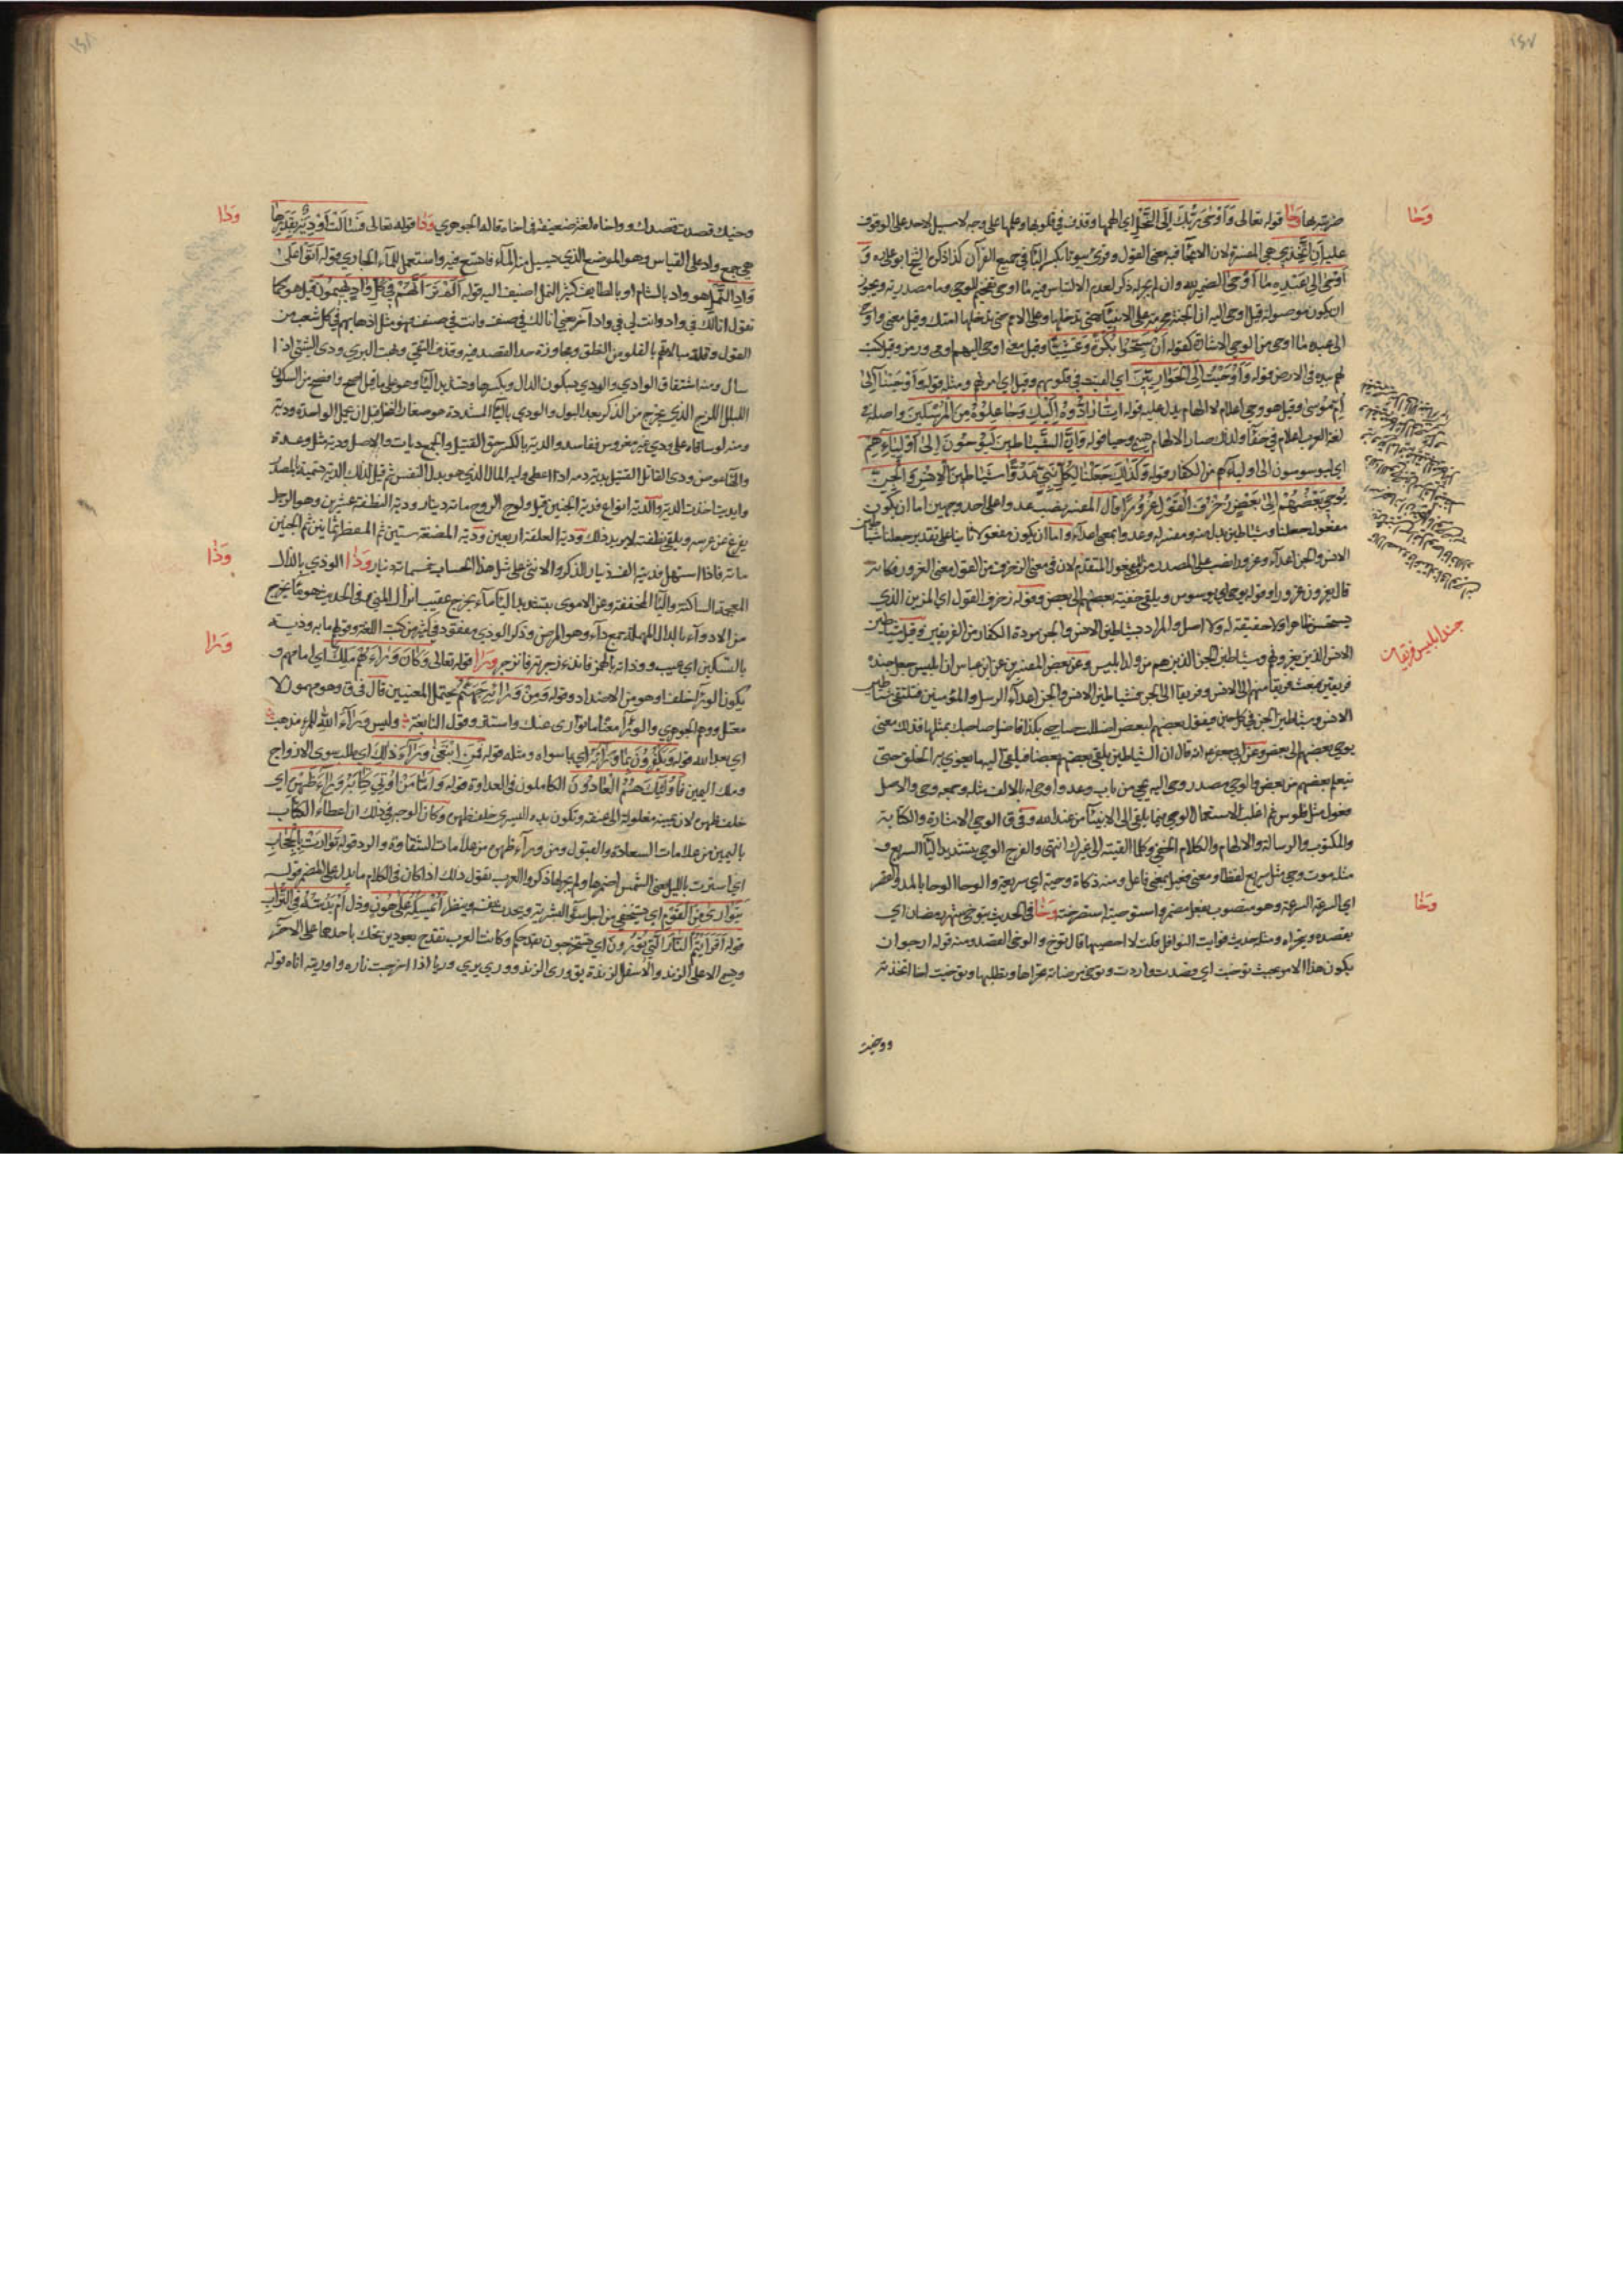 ١٤٧
وحا
ضربته بها وحا قوله تعالى وَأَوْحَىٰ رَبُّكَ إِلَى النَّحْلِ اي الهمها وقذف في قلوبها وعلمها على وجه لا سبيل لاحد على الوقوف
عليه أَنِ اتَّخِذِي هي المفسرة لان الايحاء فيه معنى القول وقرئ بيوتا بكسر الباء في جميع القرآن كذا ذكره الشيخ ابو علي ره وَ
أَوْحَىٰ إِلَىٰ عَبْدِهِ مَا أَوْحَىٰ الضمير لله وان لم يجر له ذكر لعدم الالتباس فيه ما اوحى تفخيم للوحي وما مصدرية ويجوز
ان يكون موصولة قيل اوحى اليه ان الجنة محرمة على الانبياء حتى تدخلها وعلى الامم حتى تدخلها امتك وقيل معنى واوحى
الى عبده ما اوحى من الوحي الاشارة كقوله أَنْ سَبِّحُوا بُكْرَةً وَعَشِيًّا وقيل معنى اوحى اليهم اومى ورمز وقيل كتب
لهم بيده في الارض قوله وَإِذْ أَوْحَيْتُ إِلَى الْحَوَارِيِّينَ اي القيت في قلوبهم وقيل اي امرتهم ومثله قوله وَأَوْحَيْنَا إِلَىٰ
أُمِّ مُوسَىٰ وقيل هو وحي اعلام لا الهام يدل عليه قوله إِنَّا رَادُّوهُ إِلَيْكِ وَجَاعِلُوهُ مِنَ الْمُرْسَلِينَ واصله في
لغة العرب اعلام في خفاء ولذلك صار الالهام يسمى وحيا قوله وَإِنَّ الشَّيَاطِينَ لَيُوحُونَ إِلَىٰ أَوْلِيَائِهِمْ
اي ليوسوسون الى اوليائهم من الكفار قوله وَكَذَٰلِكَ جَعَلْنَا لِكُلِّ نَبِيٍّ عَدُوًّا شَيَاطِينَ الْإِنْسِ وَالْجِنِّ
يُوحِي بَعْضُهُمْ إِلَىٰ بَعْضٍ زُخْرُفَ الْقَوْلِ غُرُورًا قال المفسر نصب عدوا على احد وجهين اما ان يكون
مفعول جعلنا وشياطين بدل منه ومفسر له وعدوا بمعنى اعداء واما ان يكون مفعولا ثانيا على تقدير جعلنا شياطين
الانس والجن اعداء وغرورا نصب على المصدر من المتقدم لان في معنى الزخرف من القول معنى الغرور فكانه
قال يغرون غرورا وقوله يوحي اي يوسوس ويلقي خفية بعضهم الى بعض وقوله زخرف القول اي المزين الذي
يستحسن ظاهرا ولا حقيقة له ولا اصل والمراد بشياطين الانس والجن مردة الكفار من الفريقين وقيل شياطين
الانس الذين يغرونهم وشياطين الجن الذين هم من ولد ابليس وعن بعض المفسرين عن ابن عباس ان ابليس جعل جنده
جند ابليس فريقان
فريقين فبعث فريقا منهم الى الانس وفريقا الى الجن فشياطين الانس والجن اعداء الرسل والمؤمنين فتلتقي شياطين
الانس وشياطين الجن في كل حين فيقول بعضهم لبعض اضللت صاحبي بكذا فاضل صاحبك بمثلها فذلك معنى
يوحي بعضهم الى بعض وعن ابي جعفر ع انه قال ان الشياطين يلقى بعضهم بعضا فيلقي اليه ما يغوي به الخلق حتى
يتعلم بعضهم من بعض والوحي مصدر وحى اليه يحي من باب وعد واوحى له بالالف مثله وجمعه وحي والاصل
فعول مثل فلوس ثم غلب استعمال الوحي فيما يلقى الى الانبياء من عند الله وفي ق الوحي الاشارة والكتابة
والمكتوب والرسالة والالهام والكلام الخفي وكلما القيته الى غيرك انتهى والفرج الوحي بتشديد الياء السريع وق
مثله موت وحي مثل سريع لفظا ومعنى فعيل بمعنى فاعل ومنه ذكاة وحية اي سريعة والوحا الوحا بالمد والقصر
وخا
اي السرعة السرعة وهو منصوب بفعل مضمر واستوحيته استصرخته وخا في الحديث يتوخى شهر رمضان اي
يقصده ويتحراه ومثله حديث فوايت النوافل قلت لا احصيها قال توخ والوخي القصد ومنه قوله ارجو ان
يكون هذا الامر بحيث توخيت اي قصدت واردت وتوخى مرضاته تحراها وتطلبها وتوخيت اخا اتخذته
ووخيت
١٤٨
ودا
وخيك قصدت قصدك وواخاه لغة ضعيفة في اخاه قاله الجوهري ودا قوله تعالى فَسَالَتْ أَوْدِيَةٌ بِقَدَرِهَا
هي جمع واد على القياس وهو الموضع الذي يسيل منه الماء فاتسع فيه واستعمل للماء الجاري قوله أَتَوْا عَلَىٰ
وَادِ النَّمْلِ هو واد بالشام او بالطايف كثير النمل اضيف اليه قوله أَلَمْ تَرَ أَنَّهُمْ فِي كُلِّ وَادٍ يَهِيمُونَ قيل هو كما
تقول انا لك في واد وانت لي في واد آخر يعني انا لك في صنف وانت في صنف وهو مثل لذهابهم في كل شعب من
القول وقلة مبالاتهم بالغلو من النطق ومجاوزة حد القصد فيه وقذف النقي وبهت البري وودى الشيء اذا
سال ومنه اشتقاق الوادي والودي بسكون الدال وبكسرها وتشديد الياء وهو على ما قيل اصح وافصح من السكون
البلل اللزج الذي يخرج من الذكر بعد البول والودي بالياء المشددة هو صغار النخل قبل ان يحمل الواحدة ودية
ومنه لو ساقاه على ودي غير مغروس ففاسد والدية بالكسر حق القتيل والجمع ديات والاصل ودية مثل وعدة
والهاء عوض ودى القاتل القتيل يديه دية اذا اعطى وليه المال الذي هو بدل النفس ثم قيل لذلك الدية تسمية بالمصدر
وايديت اخذت الدية والدية انواع فدية الجنين قبل ولوج الروح مائة دينار ودية النطفة عشرين وهو الرجل
يفزع عن عرسه ويلقي نطفته لا يريد ذلك ودية العلقة اربعين ودية المضغة ستين ثم العظم ثمانين ثم الجنين
وذا
مائة فاذا استهل فديته الف دينار للذكر والانثى على مثل هذا الحساب خمسمائة دينار وذا الوذي بالذال
المعجمة الساكنة والياء المخففة وعن الاموى بتشديد الياء ماء يخرج عقيب انزال المني وفي الحديث هو ما يخرج
من الادواء بالدال المهملة جمع داء وهو المرض وذكر الوذي مفقود في كثير من كتب اللغة وقولهم ما به وذية
ورا
بالتسكين اي عيب ووذاته بالهمز فاتذء زجرته فانزجر ورا قوله تعالى وَكَانَ وَرَاءَهُمْ مَلِكٌ اي امامهم و
يكون الوراء خلف وهو من الاضداد وقوله وَمِنْ وَرَائِهِ جَهَنَّمُ يحتمل المعنيين قال في ق وهو مهموز لا
معتل ووهم الجوهري والوراء معناه ما توارى عنك واستتر وقول النابغة وليس وراء الله للمرء مذهب
اي بعد الله قوله وَيَكْفُرُونَ بِمَا وَرَاءَهُ اي بما سواه ومثله قوله فَمَنِ ابْتَغَىٰ وَرَاءَ ذَٰلِكَ اي طلب سوى الازواج
وملك اليمين فَأُولَٰئِكَ هُمُ الْعَادُونَ الكاملون في العداوة قوله وَأَمَّا مَنْ أُوتِيَ كِتَابَهُ وَرَاءَ ظَهْرِهِ اي
خلف ظهره لان يمينه مغلولة الى عنقه وتكون يده اليسرى خلف ظهره وكان الوجه في ذلك ان اعطاء الكتاب
باليمين من علامات السعادة والقبول ومن وراء ظهره من علامات الشقاوة والرد قوله تَوَارَتْ بِالْحِجَابِ
اي استترت بالليل يعني الشمس اضمرها ولم يجر لها ذكر والعرب تقول ذلك اذا كان في الكلام ما يدل على المضمر قوله
يَتَوَارَىٰ مِنَ الْقَوْمِ اي يستخفي من اجل سوء المبشر به ويحدث نفسه وينظر أَيُمْسِكُهُ عَلَىٰ هُونٍ وذل أَمْ يَدُسُّهُ فِي التُّرَابِ
قوله أَفَرَأَيْتُمُ النَّارَ الَّتِي تُورُونَ اي تستخرجون بقدحكم وكانت العرب تقدح بعودين تحك باحدهما على الآخر
ويسمى الاعلى الزند والاسفل الزندة يق ورى الزند ووري يري وريا اذا خرجت ناره واوريته انا وقوله